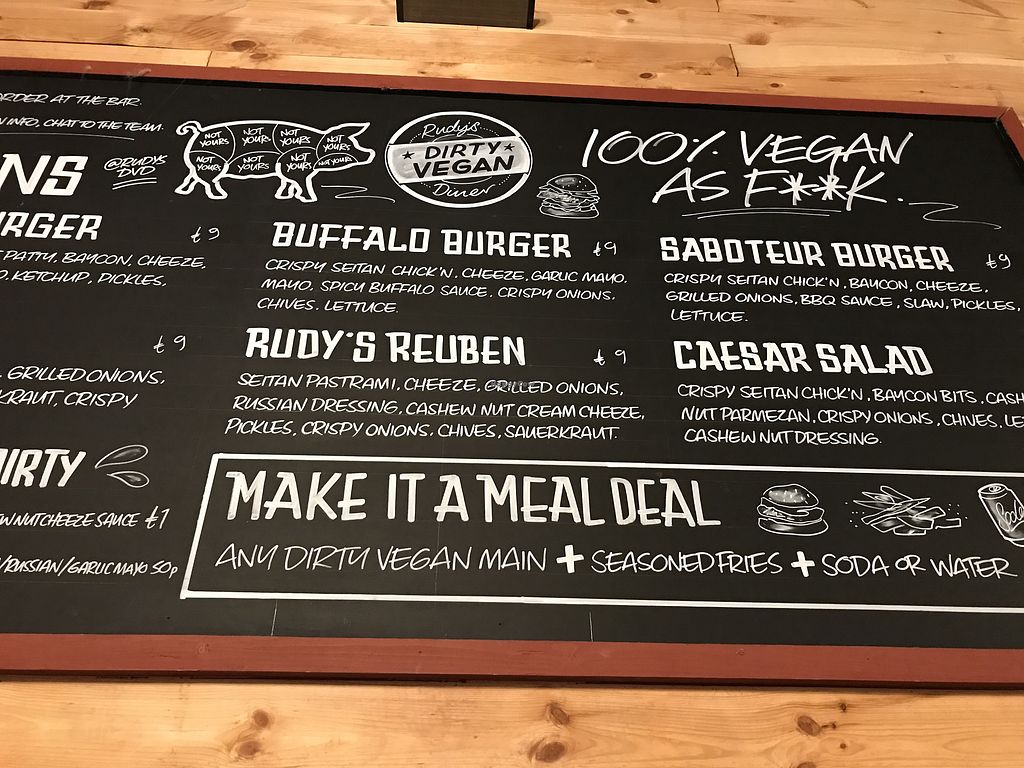 ORDER AT THE BAR.
INFO, CHAT TO THE TEAM.
@RUDYS
DVD
NOT YOURS NOT YOURS NOT YOURS NOT YOURS
NOT YOURS NOT YOURS NOT YOURS NOT YOURS
Rudy's
DIRTY
VEGAN
Diner
100% VEGAN
AS F**K.
NS
URGER £9
PATTY, BAYCON, CHEEZE,
KETCHUP, PICKLES,
£9
GRILLED ONIONS,
KRAUT, CRISPY
DIRTY
NUT CHEEZE SAUCE £1
/RUSSIAN/GARLIC MAYO 50p
BUFFALO BURGER £9
CRISPY SEITAN CHICK'N, CHEEZE, GARLIC MAYO,
MAYO, SPICY BUFFALO SAUCE, CRISPY ONIONS,
CHIVES, LETTUCE.
RUDY'S REUBEN £9
SEITAN PASTRAMI, CHEEZE, GRILLED ONIONS,
RUSSIAN DRESSING, CASHEW NUT CREAM CHEEZE,
PICKLES, CRISPY ONIONS, CHIVES, SAUERKRAUT.
SABOTEUR BURGER £9
CRISPY SEITAN CHICK'N, BAYCON, CHEEZE,
GRILLED ONIONS, BBQ SAUCE, SLAW, PICKLES,
LETTUCE.
CAESAR SALAD
CRISPY SEITAN CHICK'N, BAYCON BITS, CASH
NUT PARMEZAN, CRISPY ONIONS, CHIVES, LE
CASHEW NUT DRESSING.
MAKE IT A MEAL DEAL
ANY DIRTY VEGAN MAIN + SEASONED FRIES + SODA OR WATER